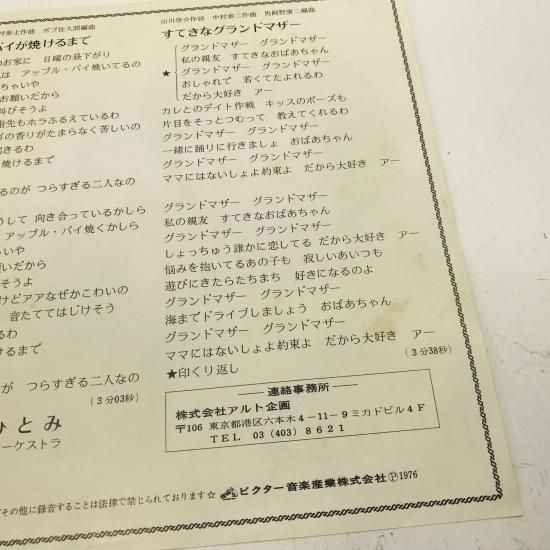 村泰士作曲 ボブ佐久間編曲
パイが焼けるまで
のお家に 日曜の昼下がり
は アップル・パイ焼いてるの
ちゃいや
お願いだから
叫びそうよ
指先もホラふるえているわ
ゴの香りがたまらなく苦しいの
起きるわ
焼けるまで
るのが つらすぎる二人なの
うして 向き合っているかしら
アップル・パイ焼くかしら
いや
だから
そうよ
けどアアなぜかこわいの
音たててはじけそう
るわ
けるまで
が つらすぎる二人なの
(3分03秒)
ひとみ
ーケストラ
山川啓介作詩 中村泰二作曲 馬飼野康二編曲
すてきなグランドマザー
グランドマザー グランドマザー
私の親友 すてきなおばあちゃん
★ グランドマザー グランドマザー
おしゃれで 若くてたよれるわ
だから大好き アー
カレとのデイト作戦 キッスのポーズも
片目をそっとつむって 教えてくれるわ
グランドマザー グランドマザー
一緒に踊りに行きましょ おばあちゃん
グランドマザー グランドマザー
ママにはないしょよ約束よ だから大好き アー
グランドマザー グランドマザー
私の親友 すてきなおばあちゃん
グランドマザー グランドマザー
しょっちゅう誰かに恋してる だから大好き アー
悩みを抱いてるあの子も 寂しいあいつも
遊びにきたらたちまち 好きになるのよ
グランドマザー グランドマザー
海までドライブしましょう おばあちゃん
グランドマザー グランドマザー
ママにはないしょよ約束よ だから大好き アー
(3分38秒)
★印くり返し
連絡事務所
株式会社アルト企画
〒106 東京都港区六本木4-11-9ミカドビル4F
TEL 03(403)8621
その他に録音することは法律で禁じられております☆ ビクター音楽産業株式会社 Ⓟ1976